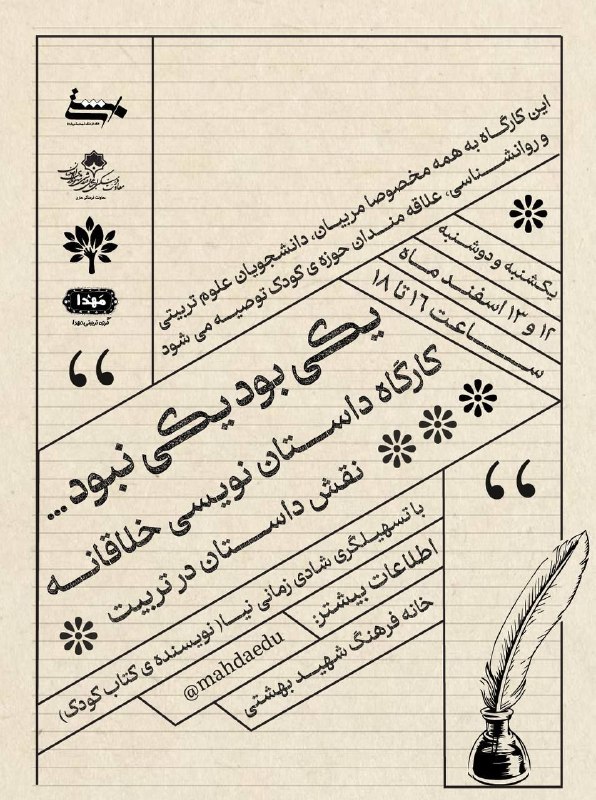 این کارگاه به همه مخصوصا مربیان، دانشجویان علوم تربیتی
و روانشناسی، علاقه مندان حوزه ی کودک توصیه می شود
یکشنبه و دوشنبه
۱۲ و ۱۳ اسفند ماه
ساعت ۱۶ تا ۱۸
یکی بود یکی نبود...
کارگاه داستان نویسی خلاقانه
نقش داستان در تربیت
با تسهیلگری شادی زمانی نیا( نویسنده ی کتاب کودک)
اطلاعات بیشتر:
@mahdaedu
خانه فرهنگ شهید بهشتی
مَهدا